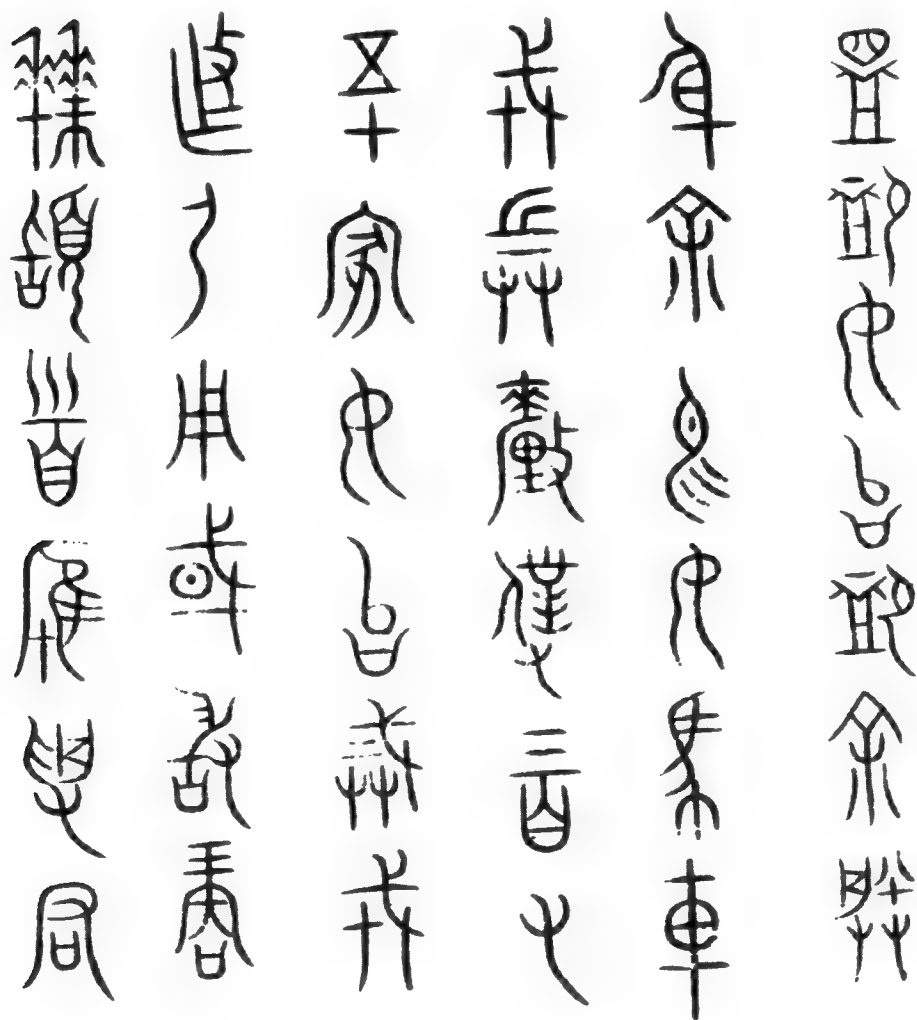 盟卹女台卹余朕
身余易女馬車
戎兵釐僕三百又
五十家女台戒戎
㐌尸用或敢再
拜䭫首雁受君